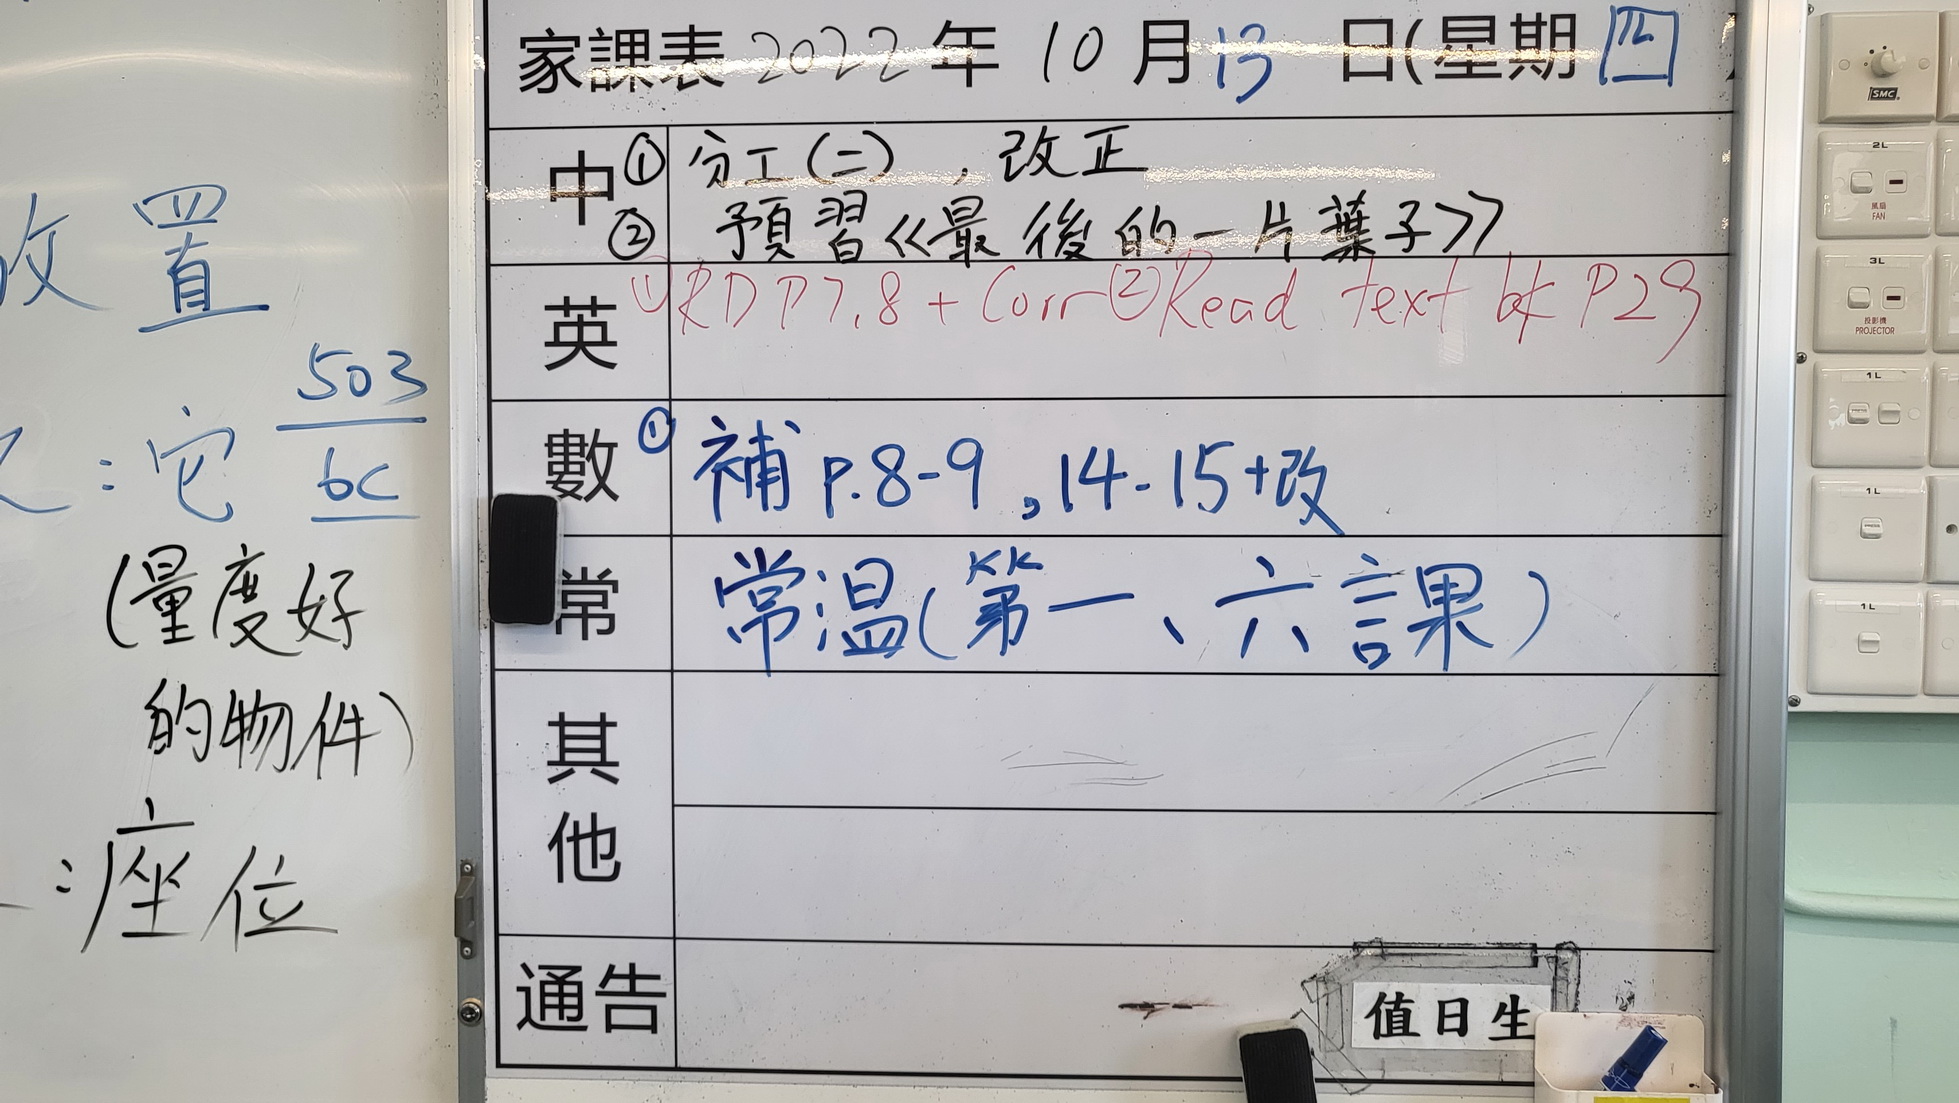 家課表 2022 年 10 月 13 日(星期 四
中 ① 分工(二), 改正
② 預習《最後的一片葉子》
英 ① RD P7.8 + Corr ② Read text bk P29
數 ① 補 P.8-9, 14-15+改
常 常温(第一、六課)
其他
通告
值日生
置
: 它 503
bc
(量度好
的物件)
: 座位
SMC
2L
風扇
FAN
3L
投影機
PROJECTOR
1L
PRESS
1L
PRESS
1L